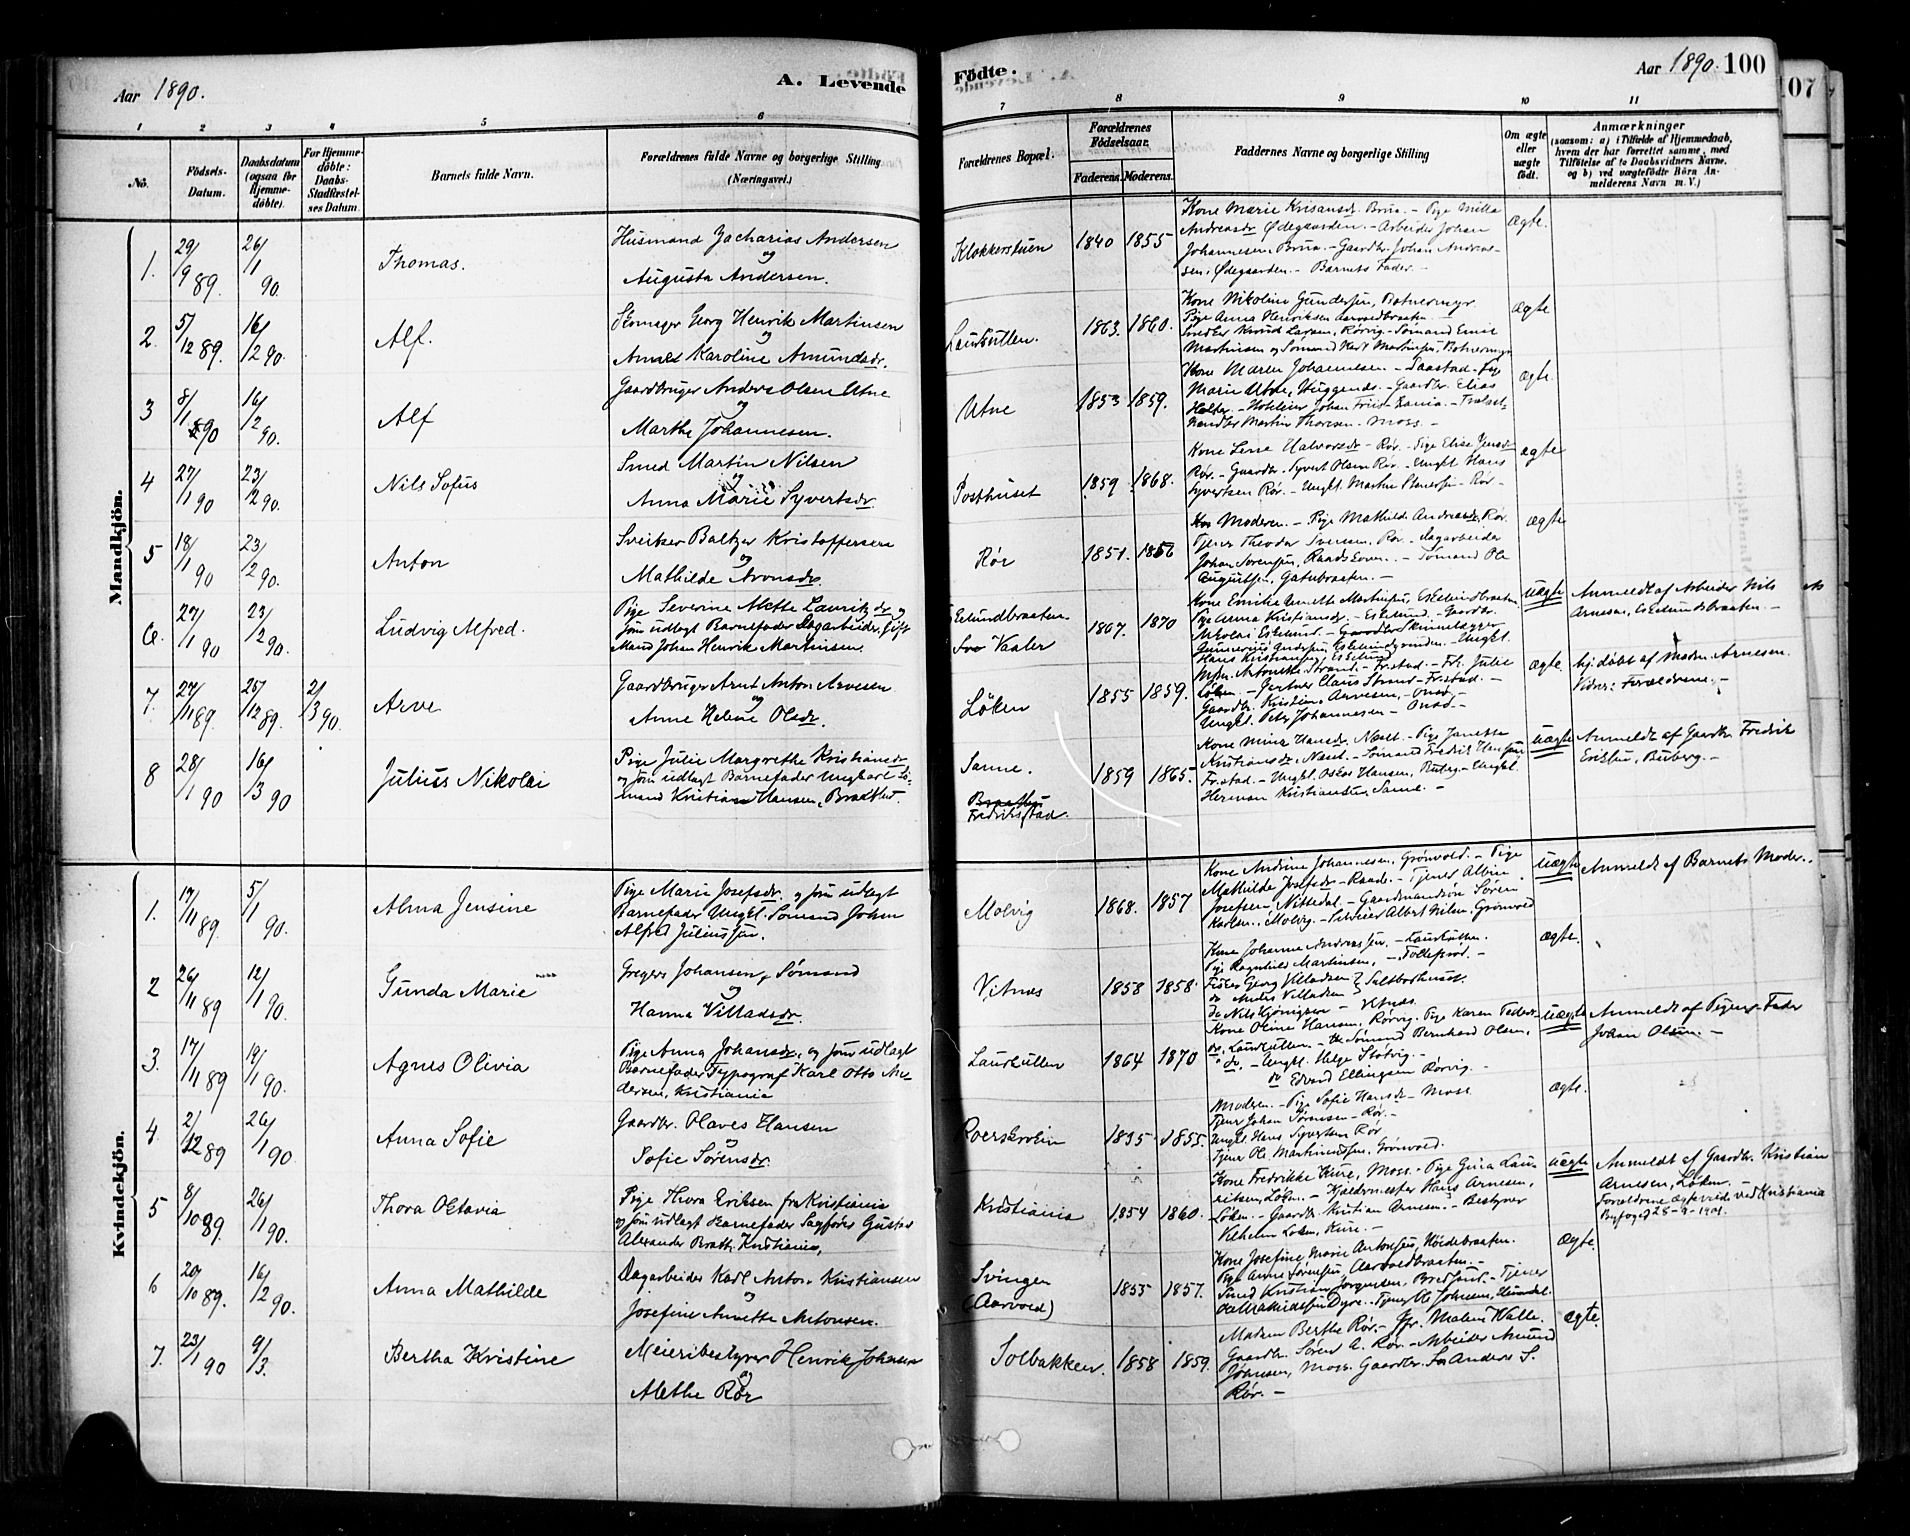 Aar 1890.
A. Levende
Födte.
Aar 1890. 100
107
1 2 3 4 5 6 7 8 9 10 11
No.
Födsels-
Datum.
Daabsdatum
(ogsaa for
Hjemme-
døbte).
For Hjemme-
döbte:
Daabs-
Stadfæstel-
ses Datum.
Barnets fulde Navn.
Forældrenes fulde Navne og borgerlige Stilling
(Næringsvei.)
Forældrenes Bopæl.
Forældrenes
Födselsaar.
Faderens. Moderens.
Faddernes Navne og borgerlige Stilling
Om ægte
eller
uægte
født.
Anmærkninger
(saasom: a) i Tilfælde af Hjemmedaab,
hvem der har forrettet samme, med
Tilföielse af to Daabsvidners Navne,
og b) ved uægtefödte Börn An-
melderens Navn m. V.)
Mandkjön.
1. 29/9 89. 26/1 90. Thomas.
Husmand Zacharias Andersen
og
Augusta Andersen.
Klokkerstuen 1840 1855
Kone Marie Brua. - Pige Milla
Andreasdr Ødegaarden. - Arbeider Johan
Johannesen Brua. - Gaardbr. Johan Andrea-
sen, Ødegaarden. - Barnets Fader. -
ægte.
2. 5/12 89. 16/2 90. Alf.
Skomager Georg Henrik Martinsen
og
Karoline Amundsdr.
Laurkullen. 1863. 1860.
Kone Nikoline Gundersen,
Pige Anna Henriksen
Knud Larsen, Rørvig - Sømand Emil
Martinsen og Sømand Karl Martinsen,
ægte
3 8/1 90 16/2 90. Alf
Gaardbruger Anders Olsen Utne
og
Marthe Johannesen.
Utne 1853 1859.
Kone Maren Johannesen. - Saastad -
Marie Utne, Huggenæs. - Gaardbr. Elias
Holter. - Johan Friis -
Martin Thoresen. Moss. -
ægte.
4 27/1 90 23/2 90. Nils Sofus
Smed Martin Nilsen
og
Anna Marie Syvertsdr.
Posthuset 1859 1868.
Kone Lene Halvorsdr - Rør. - Pige Elise Jensdr
Rør. - Gaardbr. Syvert Olsen Rør. - Ungk. Hans
Syvertsen Rør. - Ungk. Martin - Rør -
ægte
5 18/1 90 23/2 90. Anton
Baltzer Kristoffersen
Mathilde Aronsdr.
Rør 1851. 1856
Moderen. - Pige Mathilde Andreasdr, Rør.
Tjener Theodor Svensen, Rør. - Dagarbeider
Johan Sørensen, - Sømand Ole
Augustsen, Gatubraaten. -
ægte
6. 27/1 90 23/2 90. Ludvig Alfred.
Pige Severine Alette Lauritzdr og
som udlagt Barnefader Dagarbeider, gift
Mand Johan Henrik Martinsen.
Eskelundbraaten
Vaaler 1867. 1870
Kone Emilie Martinsen, Eskelundbraaten
Pige Anna Kristiansdr. - Eskelund. - Gaardbr.
Nikolai Eskelund. -
Hans Kristiansen, Eskelund
uægte
Anmeldt af Arbeider Nils
Arnesen, Eskelundsbraaten. -
7. 27/11 89. 25/12 89. 2/3 90. Arve
Gaardbruger Arnt Anton Arvesen
og
Anne Helene Olsdr.
Løken 1855 1859.
Antonette Strand. - Frstad. - Frk. Julie
Løken - Gartner Claus Strand - Frstad. -
Gaardbr. Kristian Arvesen, - Onsø, -
Ungk. Peter Johannesen - Onsø. -
ægte.
hj. døbt af Arnesen.
Vidner: Forældrene. -
8 28/1 90 16/3 90 Julius Nikolai
Pige Julie Margrethe Kristiansdr
og som udlagt Barnefader Ungkarl Sø-
mand Kristian Hansen,
Sanne.
Fredriksstad. 1859 1865.
Kone Mina Hansdr, Næsl. - Pige Janette
Kristiansdr, Næsd. - Sømand Fredrik Hansen
Frstad. - Ungk. Oskar Hansen, Buberg. - Ungk.
Herman Kristiansen, Sanne. -
uægte
Anmeldt af Gaardbr. Fredrik
Eriksen, Buberg. -
Kvindekjön.
1. 17/11 89. 5/1 90. Alma Jensine
Pige Marie Josefsdr. og som udlagt
Barnefader Ungk. Sømand Johan
Alfred Juliussen.
Molvig 1868. 1857
Kone Andrine Johannesen, Grønvold. - Pige
Mathilde Josefsdr - Raade. - Tjener Albin
Josefsen, Nittedal. - Gaardmandsøn Søren
Karlsen, Molvig. - Albert Nilsen, Grønvold
uægte
Anmeldt af Barnets Moder.
2 26/11 89. 12/1 90. Gunda Marie
Gregers Johansen, Sømand
og
Hanna Villadsdr.
Vitnæs 1858 1858.
Kone Johanne Andreassen, - Laurkullen.
Pige Ragnhild Martinsen, - Follestad. -
Fisker Georg Villadsen
do Anders Villadsen
do Nils - Vitnæs.
ægte.
3. 17/11 89 19/1 90. Agnes Olivia
Pige Anna Johansdr. og som udlagt
Barnefader Typograf Karl Otto An-
dersen, Kristiania
Laurkullen 1864 1870
Kone Oline Hansen, Rørvig. Pige Karen Peders-
dr, Laurkullen. - Sømand Bernhard Olsen,
do. - Ungk. Helge Støtvig. -
do Edvard Ellingsen Rørvig. -
uægte
Anmeldt af Pigens Fader
Johan Olsen. -
4 2/12 89 26/1 90 Anna Sofie
Gaardbr. Olaves Hansen
og
Sofie Sørensdr.
1835 1855.
Moderen. - Pige Sofie Hansdr - Moss
Tjener Johan Sørensen - Rør. -
Ungk. Hans Syvertsen Rør
Tjener Ole Martinussen, Grønvold.
ægte.
5 8/10 89. 26/1 90. Thora Octavia
Pige Thora Eriksen fra Kristiania
og som udlagt Barnefader Sagfører Gustav
Alexander Bratt, Kristiania,
Kristiania 1854 1860.
Kone Fredrikke Kure, Moss. - Pige Gina Lau-
ritsen, Løken. - Kjældermester Hans Arnesen,
Løken. - Gaardbr. Kristian Arnesen. - Bestyrer
Vilhelm Løken, Kure. -
uægte
Anmeldt af Gaardbr. Kristian
Arnesen, Løken. -
Forældrene ægteviede ved Kristiania
Byfoged 25-9-1901.
6 20/10 89. 16/2 90. Anna Mathilde
Dagarbeider Karl Anton Kristiansen
og
Josefine Annette Antonsen.
Svingen
(Aarvold) 1855 1857.
Kone Josefine Marie Antonsen, Høidebraaten.
Pige Anne Sørensen, Aarvoldbraaten. -
Smed Kristian Jørgensen, Bredsand. - Tjener
Dyre. - Tjener Ole Johnsen,
ægte.
7. 23/1 90 9/3. Bertha Kristine
Meieribestyrer Henrik Johansen
og
Alethe Rør
Solbakken. 1858 1859.
Madam Berthe Rør. - Jfr. Malene Walle.
Gaardbr. Søren A. Rør. - Arbeider Amund
Johnsen, Moss. Gaardbr. Anders S.
Rør. -
ægte.